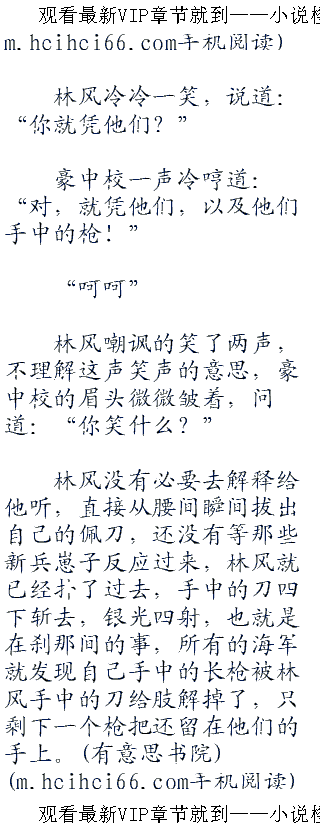 观看最新VIP章节就到——小说检
m.hcihci66.com手机阅读)
林风冷冷一笑，说道：
“你就凭他们？”
豪中校一声冷哼道：
“对，就凭他们，以及他们
手中的枪！”
“呵呵”
林风嘲讽的笑了两声，
不理解这声笑声的意思，豪
中校的眉头微微皱着，问
道：“你笑什么？”
林风没有必要去解释给
他听，直接从腰间瞬间拔出
自己的佩刀，还没有等那些
新兵崽子反应过来，林风就
已经扑了过去，手中的刀四
下斩去，银光四射，也就是
在刹那间的事，所有的海军
就发现自己手中的长枪被林
风手中的刀给肢解掉了，只
剩下一个枪把还留在他们的
手上。(有意思书院)
(m.hcihci66.com手机阅读)
观看最新VIP章节就到——小说